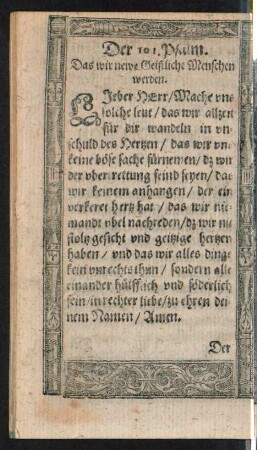 Der 101. Psalm.
Das wir newe Geistliche Menschen
werden.
LIeber HErr/Mache vns
solche leut/das wir allzeit
für dir wandeln in vn-
schuld des Hertzen/das wir vns
keine böse sache fürnemen/dz wir
der vbertrettung feind seyen/das
wir keinem anhangen/der ein
verkeret hertz hat/das wir nie-
mandt vbel nachreden/dz wir nit
stoltz gesicht vnd geitzige hertzen
haben/vnd das wir alles dings
kein vnrechts thun/sondern alle
einander hülfflich vnd föderlich
sein/in rechter liebe/zu ehren dei-
nem Namen/Amen.
Der